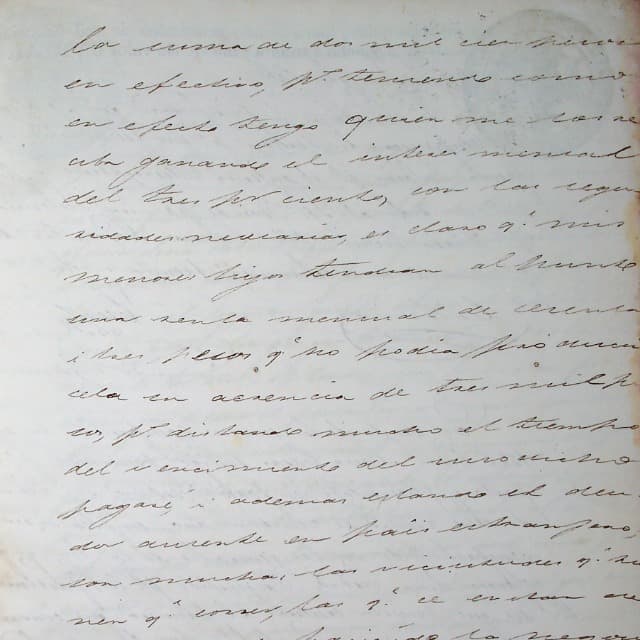 la suma de dos mil cien pesos
en efectivo, pr. teniendo como
en efecto tengo quien me los a
ceta ganando el interes mensual
del tres pr. ciento, con las segu
ridades necesarias, es claro qe. mis
menores hijos tendrian al punto
una renta mensual de sesenta
i tres pesos qe. no podia producir
cela su acrencia de tres mil p
so, pr. distando mucho el tiempo
del vencimiento del susodicho
pagaré i ademas estando el deu
dor ausente en pais estranjero,
son muchas las vicisitudes qe.
rien qe. correr, las qe. se evitan
haciendo la